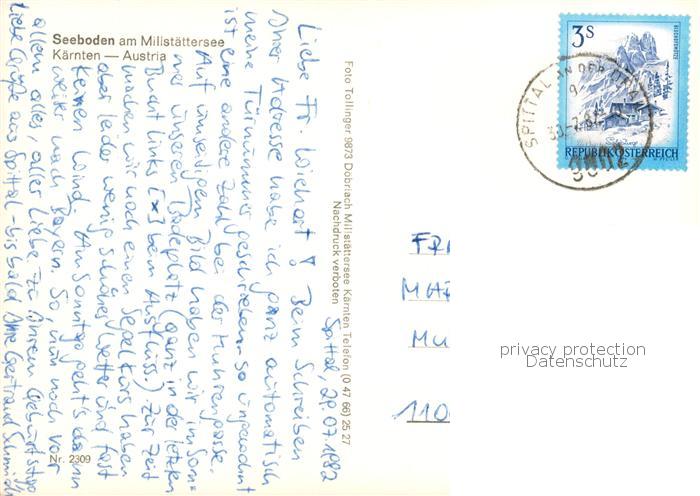 Seeboden am Millstättersee
Kärnten — Austria
Spittal, 29.07.1982
Liebe Fr. Wichart! Beim Schreiben
Ihrer Adresse habe ich ganz automatisch
meine Türnummer geschrieben - so ungewohnt
ist eine andere Zahl bei der Muhrengasse.
Auf umseitigem Bild haben wir im Som-
mer unseren Badeplatz (ganz in der letzten
Bucht links [x] beim Ausfluss.) Zur Zeit
machen wir noch einen Segelkurs, haben
aber leider wenig schönes Wetter und fast
keinen Wind. Am Sonntag geht's dann
weiter nach Bayern. So, nun noch vor
allem alles, alles Liebe zu Ihrem Geburtstag
Liebe Grüße aus Spittal - bis bald Ihre Gertraud Schmidt
Nr. 2309
Foto Tollinger 9873 Dobriach Millstättersee Kärnten Telefon (0 47 66) 25 27
Nachdruck verboten
3S
REPUBLIK ÖSTERREICH
SPITTAL AN DER DRAU
FR
MA
MU
110
privacy protection
Datenschutz